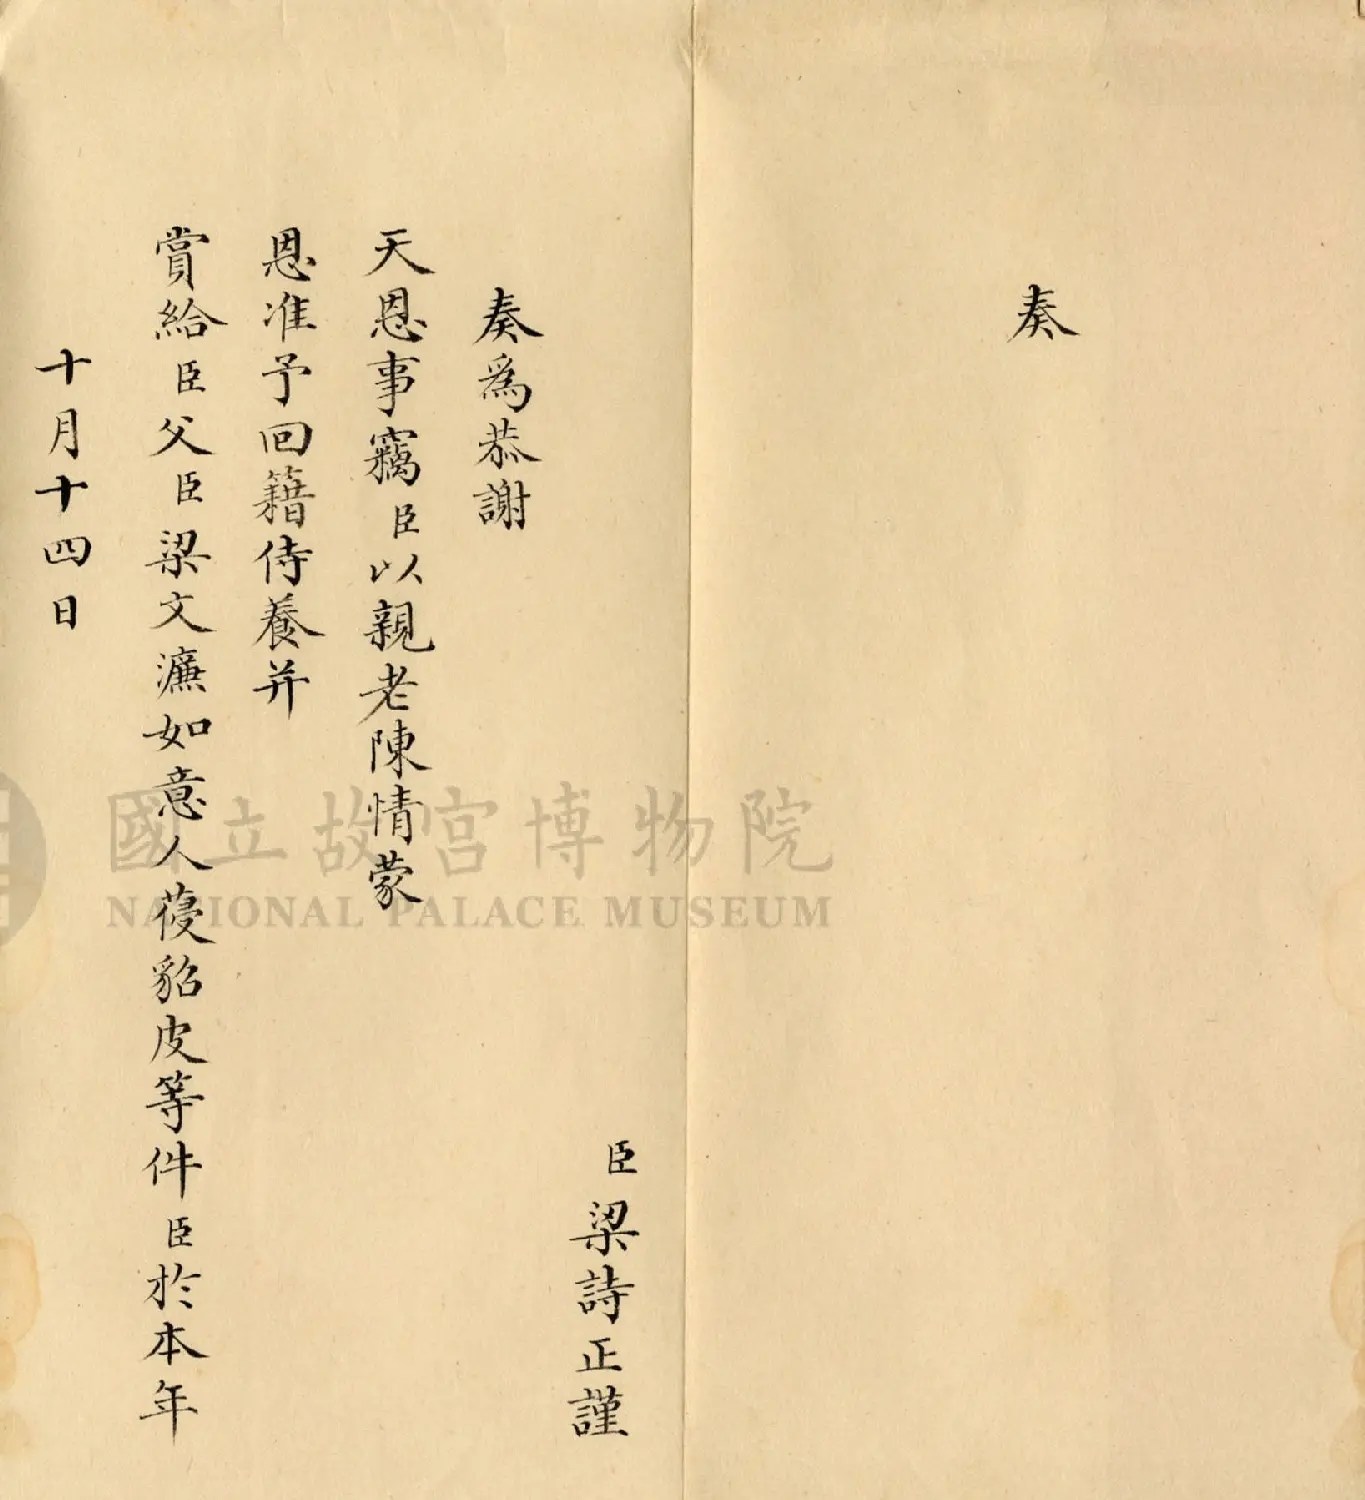 奏
臣梁詩正謹
奏為恭謝
天恩事竊臣以親老陳情蒙
恩准予回籍侍養并
賞給臣父臣梁文濂如意人葠貂皮等件臣於本年
十月十四日
國立故宮博物院
NATIONAL PALACE MUSEUM